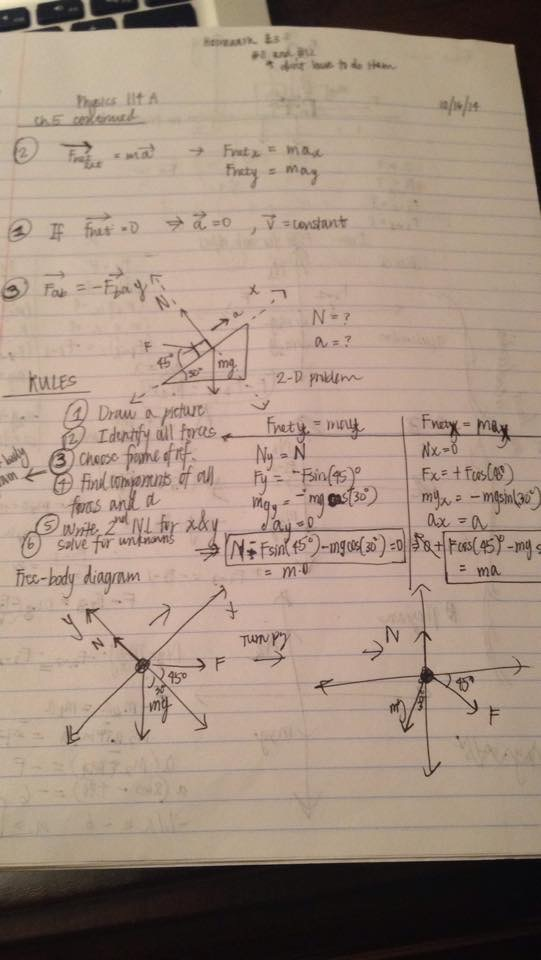 Homework #3
#8 and #12
* don't have to do them
Physics 114 A
10/16/14
Ch 5 continued
② Fnet = ma → Fnetx = max
Fnety = may
① If Fnet = 0 ⇒ a = 0, v = constant
③ Fab = -Fba
y
x
N
a
F
45°
30°
mg
N = ?
a = ?
2-D problem
RULES
① Draw a picture
② Identify all forces
③ Choose frame of rf.
④ Find components of all
forces and a
⑤ Write 2nd NL for x & y
⑥ solve for unknowns
Fnety = may
Ny = N
Fy = -Fsin(45)°
mgy = -mg cos(30°)
ay = 0
⇒ N - Fsin(45°) - mgcos(30°) = 0
= m·0
Fnetx = max
Nx = 0
Fx = + Fcos(45°)
mgx = -mgsin(30°)
ax = a
⇒ 0 + Fcos(45)° - mg s
= ma
Free-body diagram
y
N
F
45°
30°
mg
Turn pg
→
N
45°
F